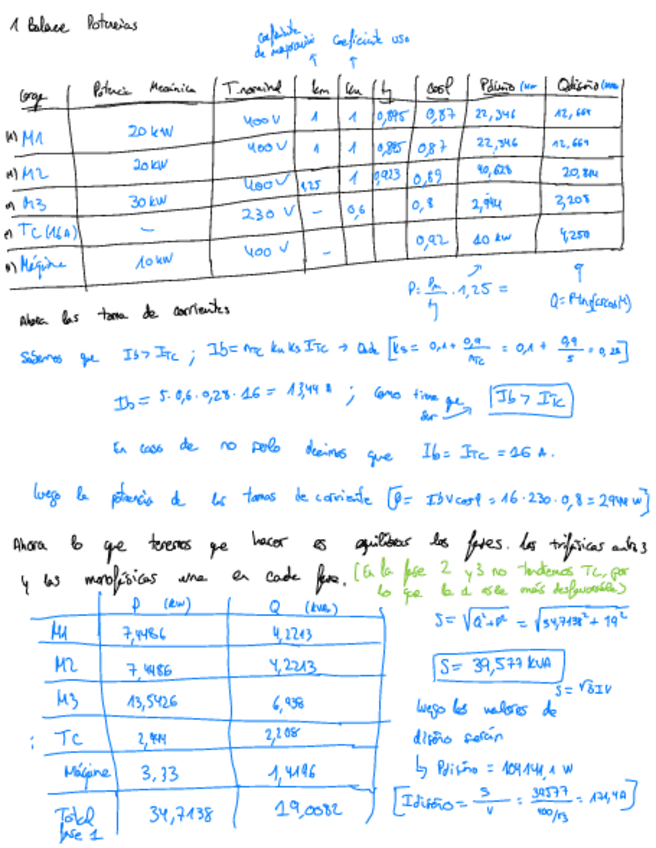 1 Balance Potencias
coeficiente de mayoración Coeficiente uso
Carga Potencia Mecánica T nominal km ku η cosφ Pdiseño (kW Qdiseño (kVAr
(3) M1 20 kW 400 V 1 1 0,895 0,87 22,346 12,664
M2 20 kW 400 V 1 1 0,895 0,87 22,346 12,664
M3 30 kW 400 V 1,25 1 0,923 0,89 40,628 20,814
TC (16A) - 230 V - 0,6 0,8 2,944 2,208
Máquina 10 kW 400 V - 0,92 10 kW 4,250
P = Pm/η · 1,25 =
Ahora las toma de corrientes
Sabemos que Ib > ITC ; Ib = nTC ku ks ITC → Donde [ks = 0,1 + 0,9/nTC = 0,1 + 0,9/5 = 0,28]
Ib = 5 · 0,6 · 0,28 · 16 = 13,44 A ; Como tiene que ser → Ib > ITC
En caso de no serlo decimos que Ib = ITC = 16 A.
luego la potencia de las tomas de corriente [P = Ib V cosφ = 16 · 230 · 0,8 = 2944 W]
Ahora lo que tenemos que hacer es equilibrar las fases. Las trifásicas entre 3
y las monofásicas una en cada fase. (En la fase 2 y 3 no tendremos TC, por
lo que la 1 es la más desfavorable)
P (kW) Q (kVAr)
M1 7,4486 4,2213
M2 7,4486 4,2213
M3 13,5426 6,938
TC 2,944 2,208
Máquina 3,33 1,4196
Total fase 1 34,7138 19,0082
S = √Q²+P² = √34,7138² + 19²
S = 39,577 kVA
S = √3IV
luego los valores de
diseño serán
↳ Pdiseño = 104141,1 W
[Idiseño = S/V = 39577/400/√3 = 171,4 A]